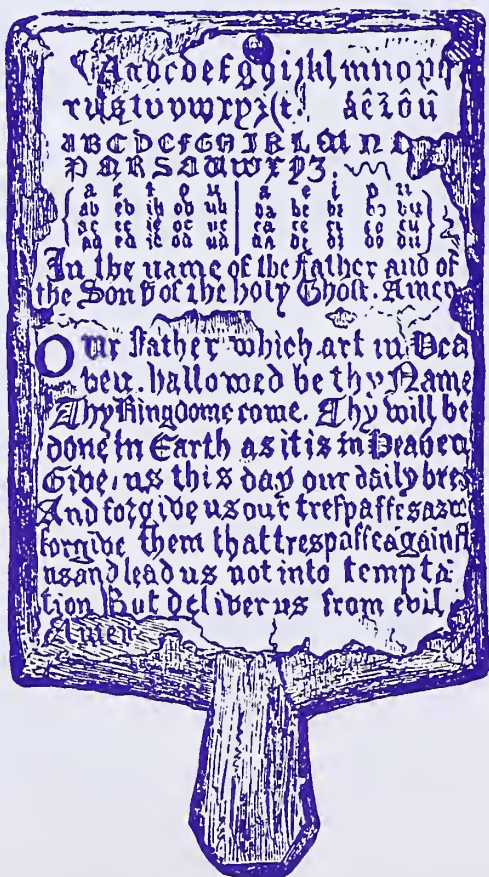 Abcdefghijklmnopq
rustuvwxyz&t. áêîôû
ABCDEFGHIKLMNO
PQRSTUWXYZ.
a e i o u a e i o u
ab eb ib ob ub ba be bi bo bu
ac ec ic oc uc ca ce ci co cu
ad ed id od ud da de di do du
In the name of the father and of
the Son & of the holy Ghost. Amen
Our Father which art in Hea
ven. hallowed be thy Name
Thy Kingdome come. Thy will be
done in Earth as it is in Heaven
Give us this day our daily brea
And forgive us our trespasses as we
forgive them that trespasse against
us and lead us not into tempta
tion But deliver us from evil
Amen